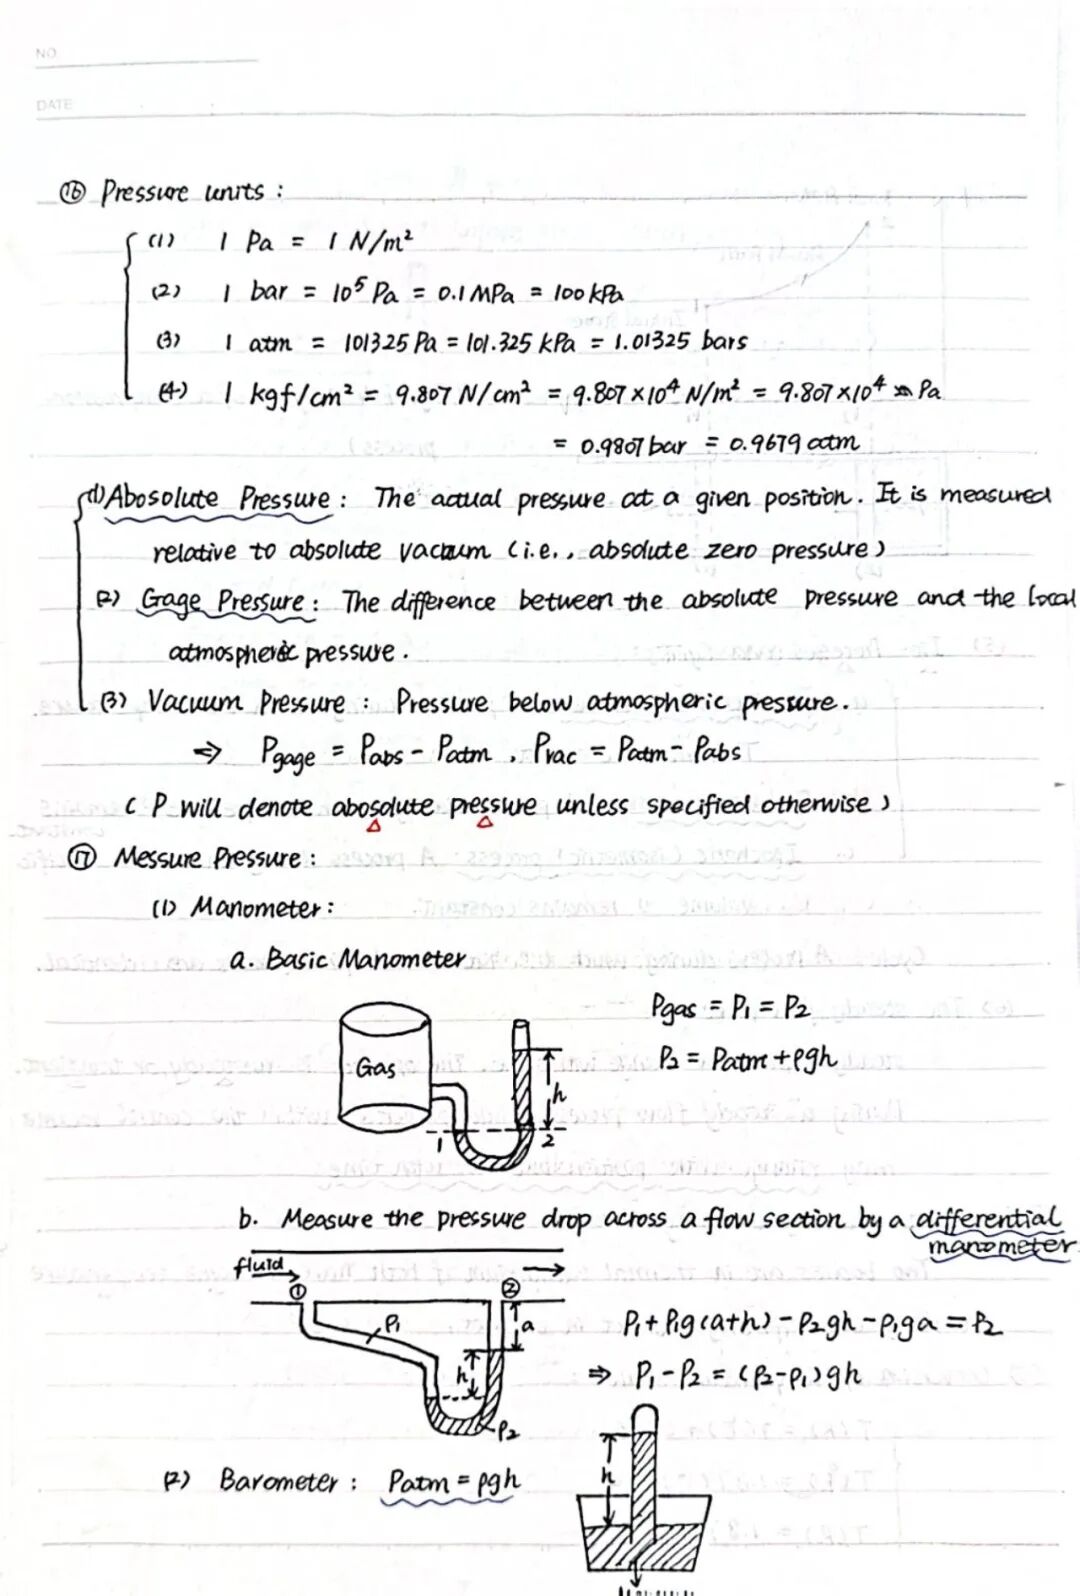 NO
DATE
⑯ Pressure units :
(1) 1 Pa = 1 N/m²
(2) 1 bar = 10⁵ Pa = 0.1 MPa = 100 kPa
(3) 1 atm = 101325 Pa = 101.325 kPa = 1.01325 bars
(4) 1 kgf/cm² = 9.807 N/cm² = 9.807×10⁴ N/m² = 9.807×10⁴ Pa
= 0.9807 bar = 0.9679 atm
(1) Abosolute Pressure : The actual pressure at a given position. It is measured
relative to absolute vacuum (i.e., absolute zero pressure)
(2) Gage Pressure : The difference between the absolute pressure and the local
atmospheric pressure.
(3) Vacuum Pressure : Pressure below atmospheric pressure.
⇒ Pgage = Pabs - Patm , Pvac = Patm - Pabs
( P will denote abosolute pressure unless specified otherwise )
⑰ Messure Pressure :
(1) Manometer :
a. Basic Manometer
Pgas = P₁ = P₂
Gas
P₂ = Patm + ρgh
h
1 2
b. Measure the pressure drop across a flow section by a differential
manometer
fluid
① ②
ρ₁ a
P₁ + ρ₁g(a+h) - ρ₂gh - ρ₁ga = P₂
h
⇒ P₁ - P₂ = (ρ₂-ρ₁)gh
ρ₂
(2) Barometer : Patm = ρgh
h